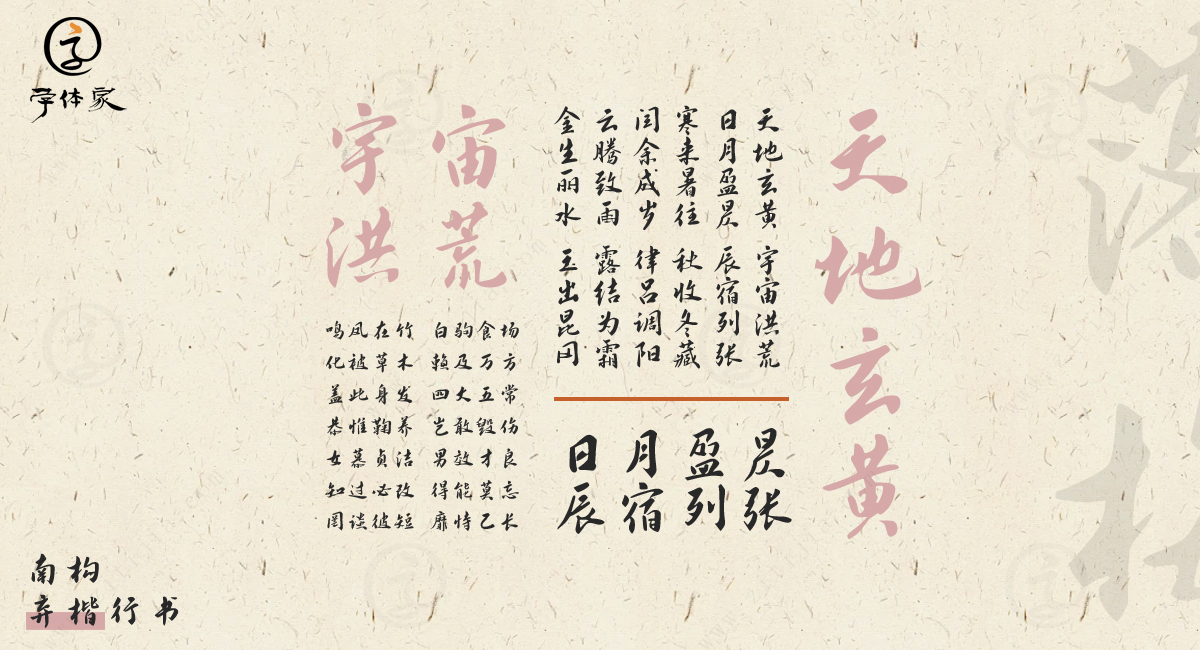 字体家
天地玄黄
天地玄黄 宇宙洪荒
日月盈昃 辰宿列张
寒来暑往 秋收冬藏
闰余成岁 律吕调阳
云腾致雨 露结为霜
金生丽水 玉出昆冈
日月盈昃
辰宿列张
宇宙
洪荒
鸣凤在竹 白驹食场
化被草木 赖及万方
盖此身发 四大五常
恭惟鞠养 岂敢毁伤
女慕贞洁 男效才良
知过必改 得能莫忘
罔谈彼短 靡恃己长
南构
弃楷行书